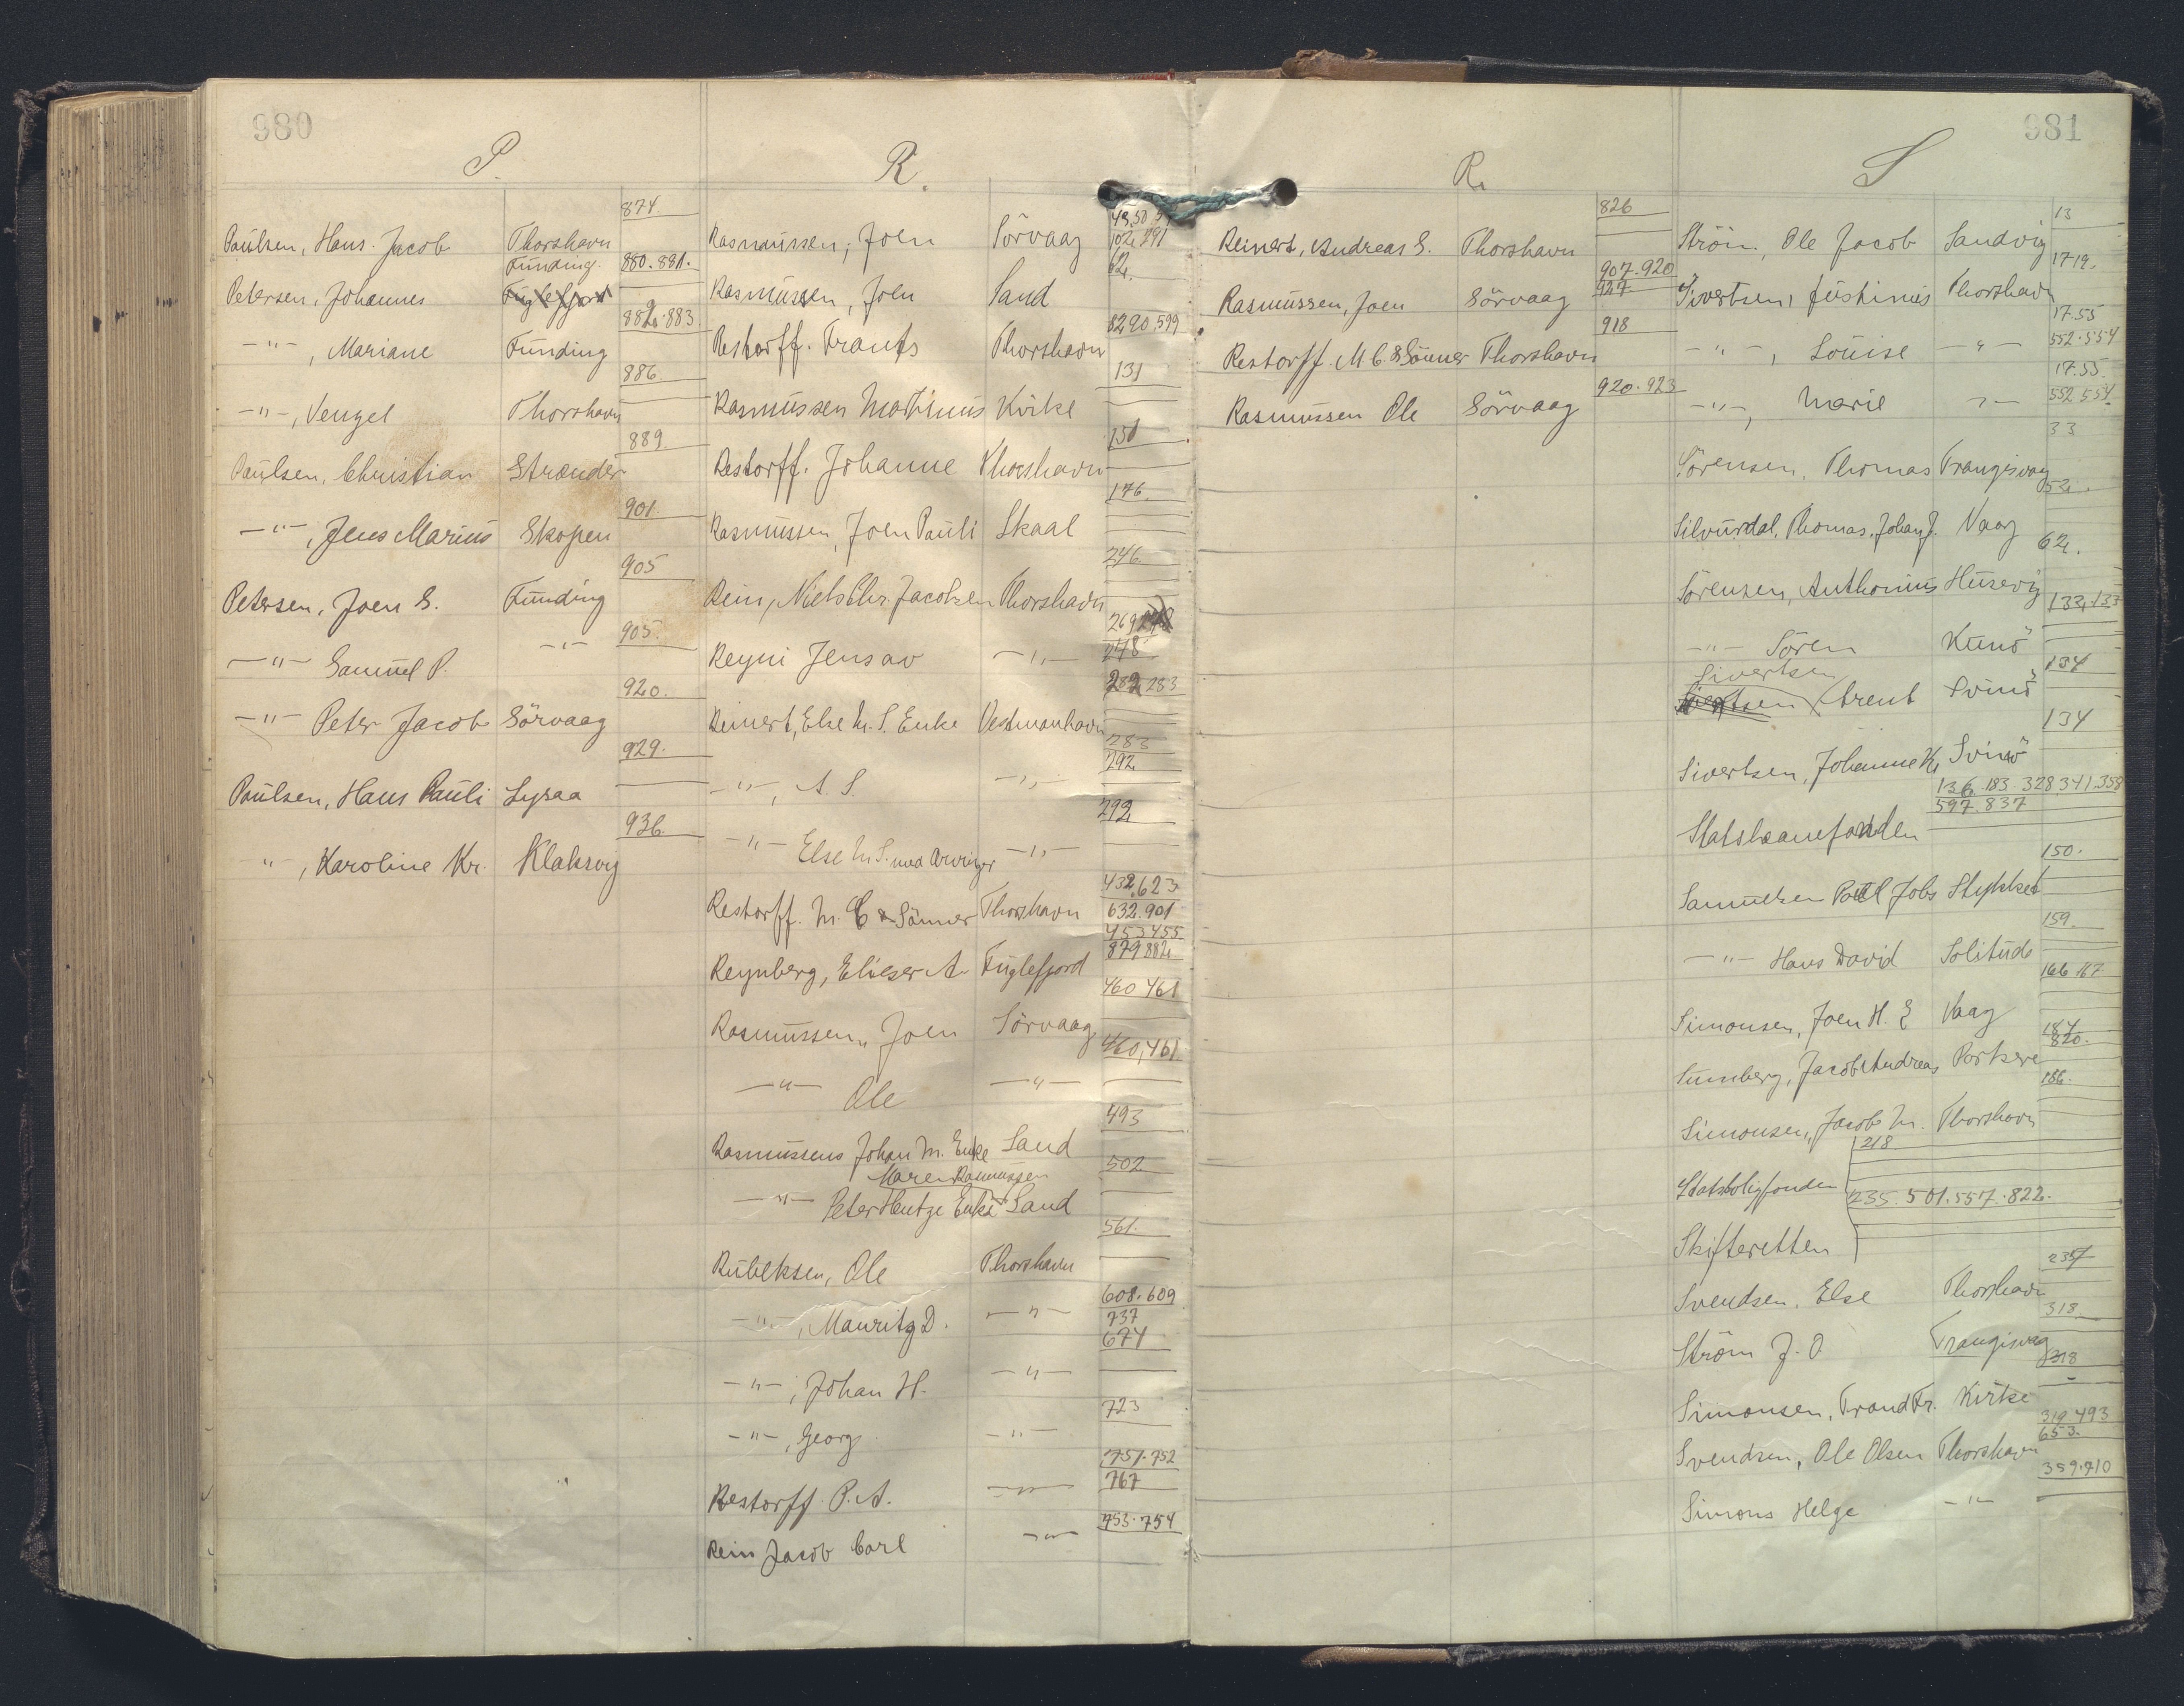 980
P.
874.
Paulsen, Hans Jacob Thorshavn
Funding. 880.881.
Petersen, Johannes Fuglefjord
882.883
-"-, Mariane Funding
886.
-"-, Venzel Thorshavn
889.
Paulsen, Christian Strender
901.
-"-, Jens Marius Skopen
905
Petersen, Joen S. Funding
905.
-"- Samuel P. -"-
920.
-"- Peter Jacob Sörvaag
929.
Paulsen, Hans Pauli Lyraa
936.
-"-, Karoline Kr. Klaksvig
R.
49.50.
102.291
Rasmussen, Joen Sörvaag
62.
Rasmussen, Joen Sand
82.90.599
Restorff. Frants Thorshavn
131
Rasmussen Martinus Kvike
151
Restorff. Johanne Thorshavn
176.
Rasmussen, Joen Pauli Skaal
246.
Rein, Niels Chr. Jacobsen Thorshavn
269
248
Reyni Jensav -"-
282.283
Reinert, Else M. S. Enke Vestmanhavn
283
292
-"-, A. S. -"-
292
-"- Else M S. -"-
432.623
Restorff. M. C & Sönner Thorshavn 632.901
453 455
879 882
Reynberg, Elieser A. Fuglefjord
460 461
Rasmussen, Joen Sörvaag
460,461
-"- Ole -"-
493
Rasmussens Johan M. Enke Sand
Maren Rasmussen 502
-"- Peter Hentze Enke Sand
561.
Rubeksen, Ole Thorshavn
608.609
737
-"-, Mauritz D. -"-
674
-"-, Johan H. -"-
723
-"-, Georg -"-
751.752
767
Restorff P. A. -"-
753.754
Rein Jacob Carl -"-
981
R.
826
Reinert, Andreas S. Thorshavn
907.920
927
Rasmussen, Joen Sörvaag
918
Restorff. M C. & Sönner Thorshavn
920.923
Rasmussen Ole Sörvaag
S
13
Ström, Ole Jacob Sandvig
17 19.
Sivertsen, Justinus Thorshavn
17.55
552.554
-"-, Louise -"-
17.55.
552 554
-"-, Marie -"-
33
Sörensen, Thomas Trangisvaag
52.
Silvurdal, Thomas. Johan J. Vaag
62.
Sörensen, Anthonius Husevig
132,133
-"- Sören Kunö
Sivertsen 134
Arent Svinö
134
Sivertsen, Johanne K. Svinö
136.183.328.341.358
597.837
Statslaanefonden
150.
Samuelsen Poul Jobs Stykket
159.
-"- Hans David Solitude
166 167
Simonsen, Joen H. E Vaag
184
820.
Sumberg, Jacob Andreas Porkere
186.
Simonsen, Jacob M. Thorshavn
218
Statsboligfonden
235.501.557.822.
Skifteretten
235
Svendsen, Else Thorshavn
318
Ström J. O. Trangisvaag
318
Simonsen, Trond Fr. Kvikse
319.493
653.
Svendsen, Ole Olsen Thorshavn
359.710
Simons Helge -"-